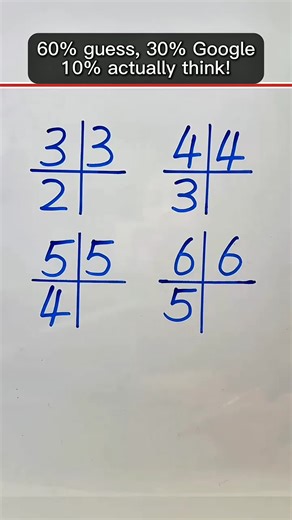 60% guess, 30% Google
10% actually think!
3 3 4 4
2 3
5 5 6 6
4 5